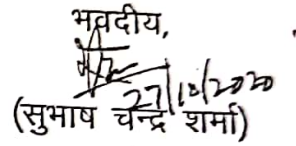 भवदीय,
27/10/2020
(सुभाष चन्द्र शर्मा)